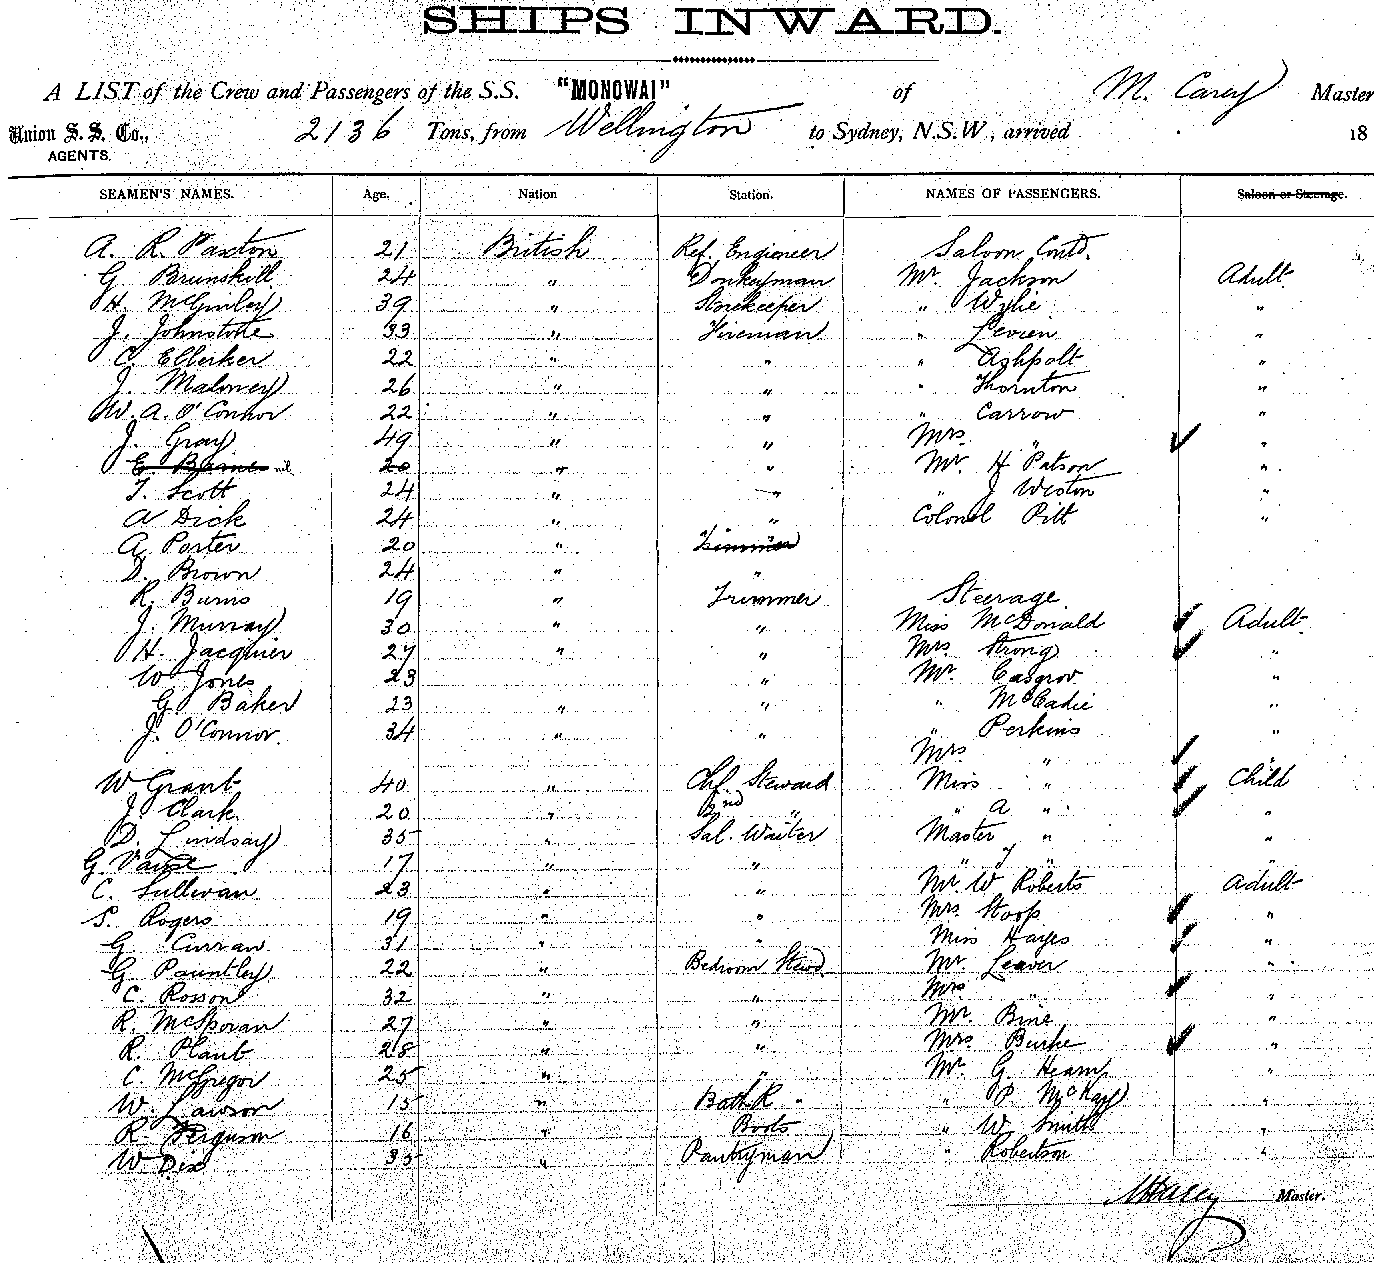 SHIPS INWARD.
A LIST of the Crew and Passengers of the S.S. "MONOWAI" of M. Carey Master
Union S. S. Co., 2136 Tons, from Wellington to Sydney, N.S.W., arrived 18
AGENTS.
SEAMEN'S NAMES. Age. Nation Station. NAMES OF PASSENGERS. Saloon or Steerage.
A. R. Paxton 21 British Ref. Engineer Saloon Contd.
G Brunskill 24 " Donkeyman Mr. Jackson Adult
H. McGinley 39 " Storekeeper " Wylie "
J. Johnstone 33 " Fireman " Levien "
C. Ellerker 22 " " " Ashpolt "
J. Maloney 26 " " " Thornton "
W. A. O'Connor 22 " " " Carrow "
J. Gray 49 " " Mrs " "
20 " " Mr. H Patson "
T. Scott 24 " " " J Weston "
A Dick 24 " " Colonel Pitt "
A. Porter 20 " Trimmer
D. Brown 24 " "
R. Burns 19 " Trimmer Steerage
J. Murray 30 " " Miss McDonald Adult
H. Jacquier 27 " " Mrs Strong "
W Jones 23 " Mr. Casgrov "
G. Baker 23 " " " McCadie "
J. O'Connor. 34 " " Perkins "
Mrs " "
W Grant 40 " Chf. Steward Miss " Child
J. Clark 20 " 2nd " " A " "
D. Lindsay 35 " Sal. Waiter Master " "
G 17 " " " J " "
C. Sullivan 23 " " Mr W Roberts Adult
S. Rogers 19 " " Mrs. Stoop "
G. Curran 31 " " Miss Hayes "
G. Pauntley 22 " Bedroom Stewd Mr. Leaver "
C. Rosson 32 " " Mrs " "
R. McSporan 27 " " Mr. Bine "
R. Plant 28 " " Mrs. Burke "
C. McGregor 25 " " Mr. G. Hearn "
W. Lawson 15 " Bath R " " P. McKay "
R. Ferguson 16 " Boots " W Smith "
W Dix 35 " Pantryman " Robertson "
M Carey Master.